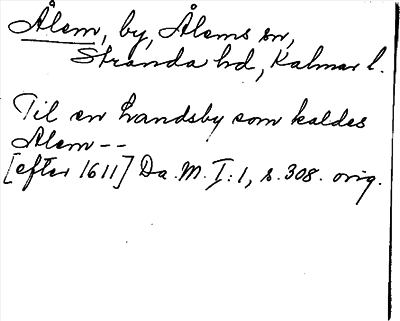 Ålem, by, Ålems sn,
Stranda hd, Kalmar l.
Til en Landsby som kaldes
Alem --
[efter 1611] Da. M. I:1, s. 308. orig.